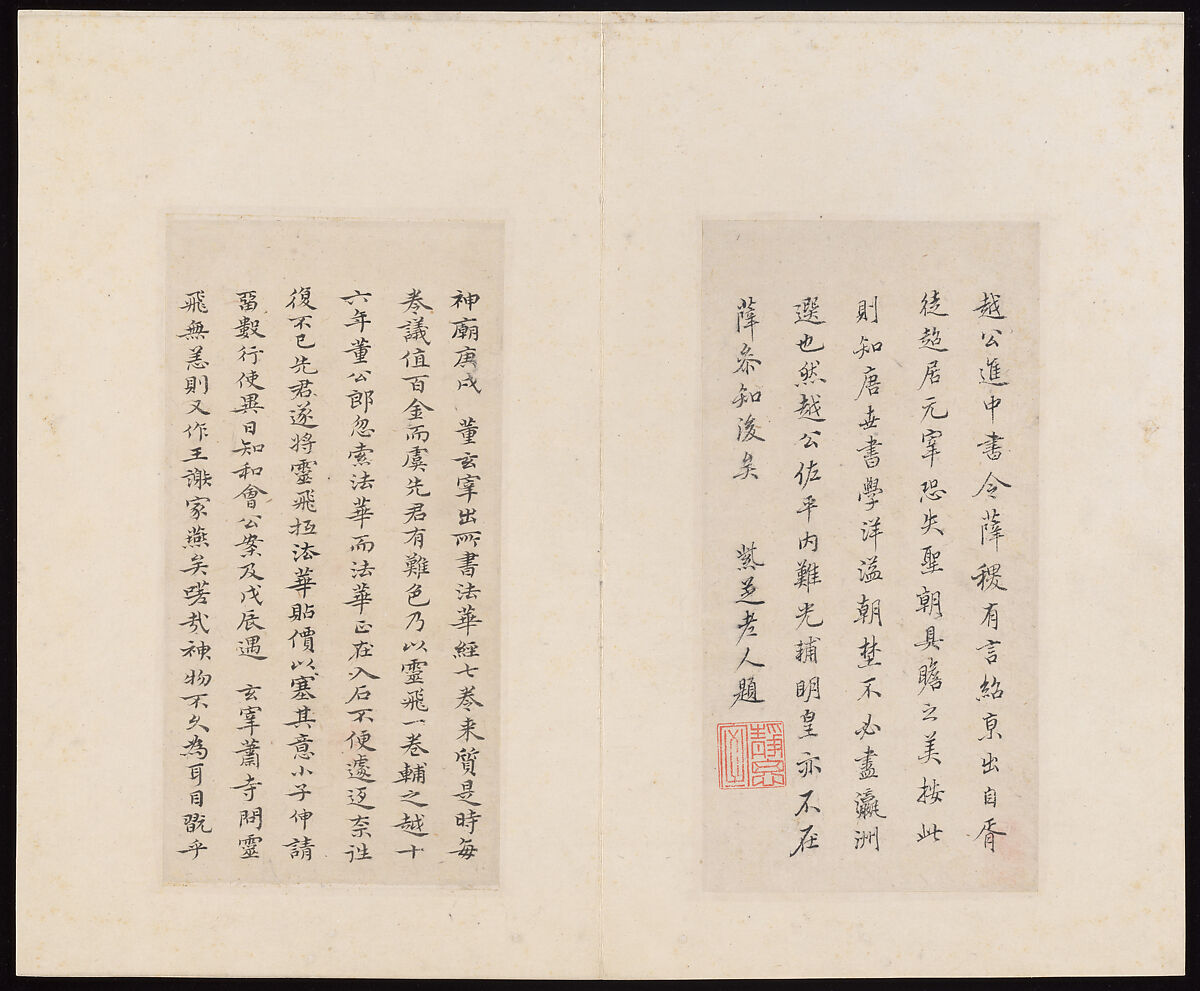 越公進中書令薛稷有言紹京出自胥
徒超居元宰恐失聖朝具瞻之美按此
則知唐世書學洋溢朝埜不必盡瀛洲
選也然越公佐平內難光輔明皇亦不在
薛叅知後矣 紫芝老人題
神廟庚戌 董玄宰出所書法華經七卷来質是時每
卷議值百金而虞先君有難色乃以靈飛一卷輔之越十
六年董公郎忽索法華而法華正在入石不便遽返奈往
復不已先君遂將靈飛抵法華貼價以塞其意小子伸請
畱數行使異日知和會公案及戊辰遇 玄宰蕭寺問靈
飛無恙則又作王謝家燕矣嗟哉神物不久為耳目翫乎